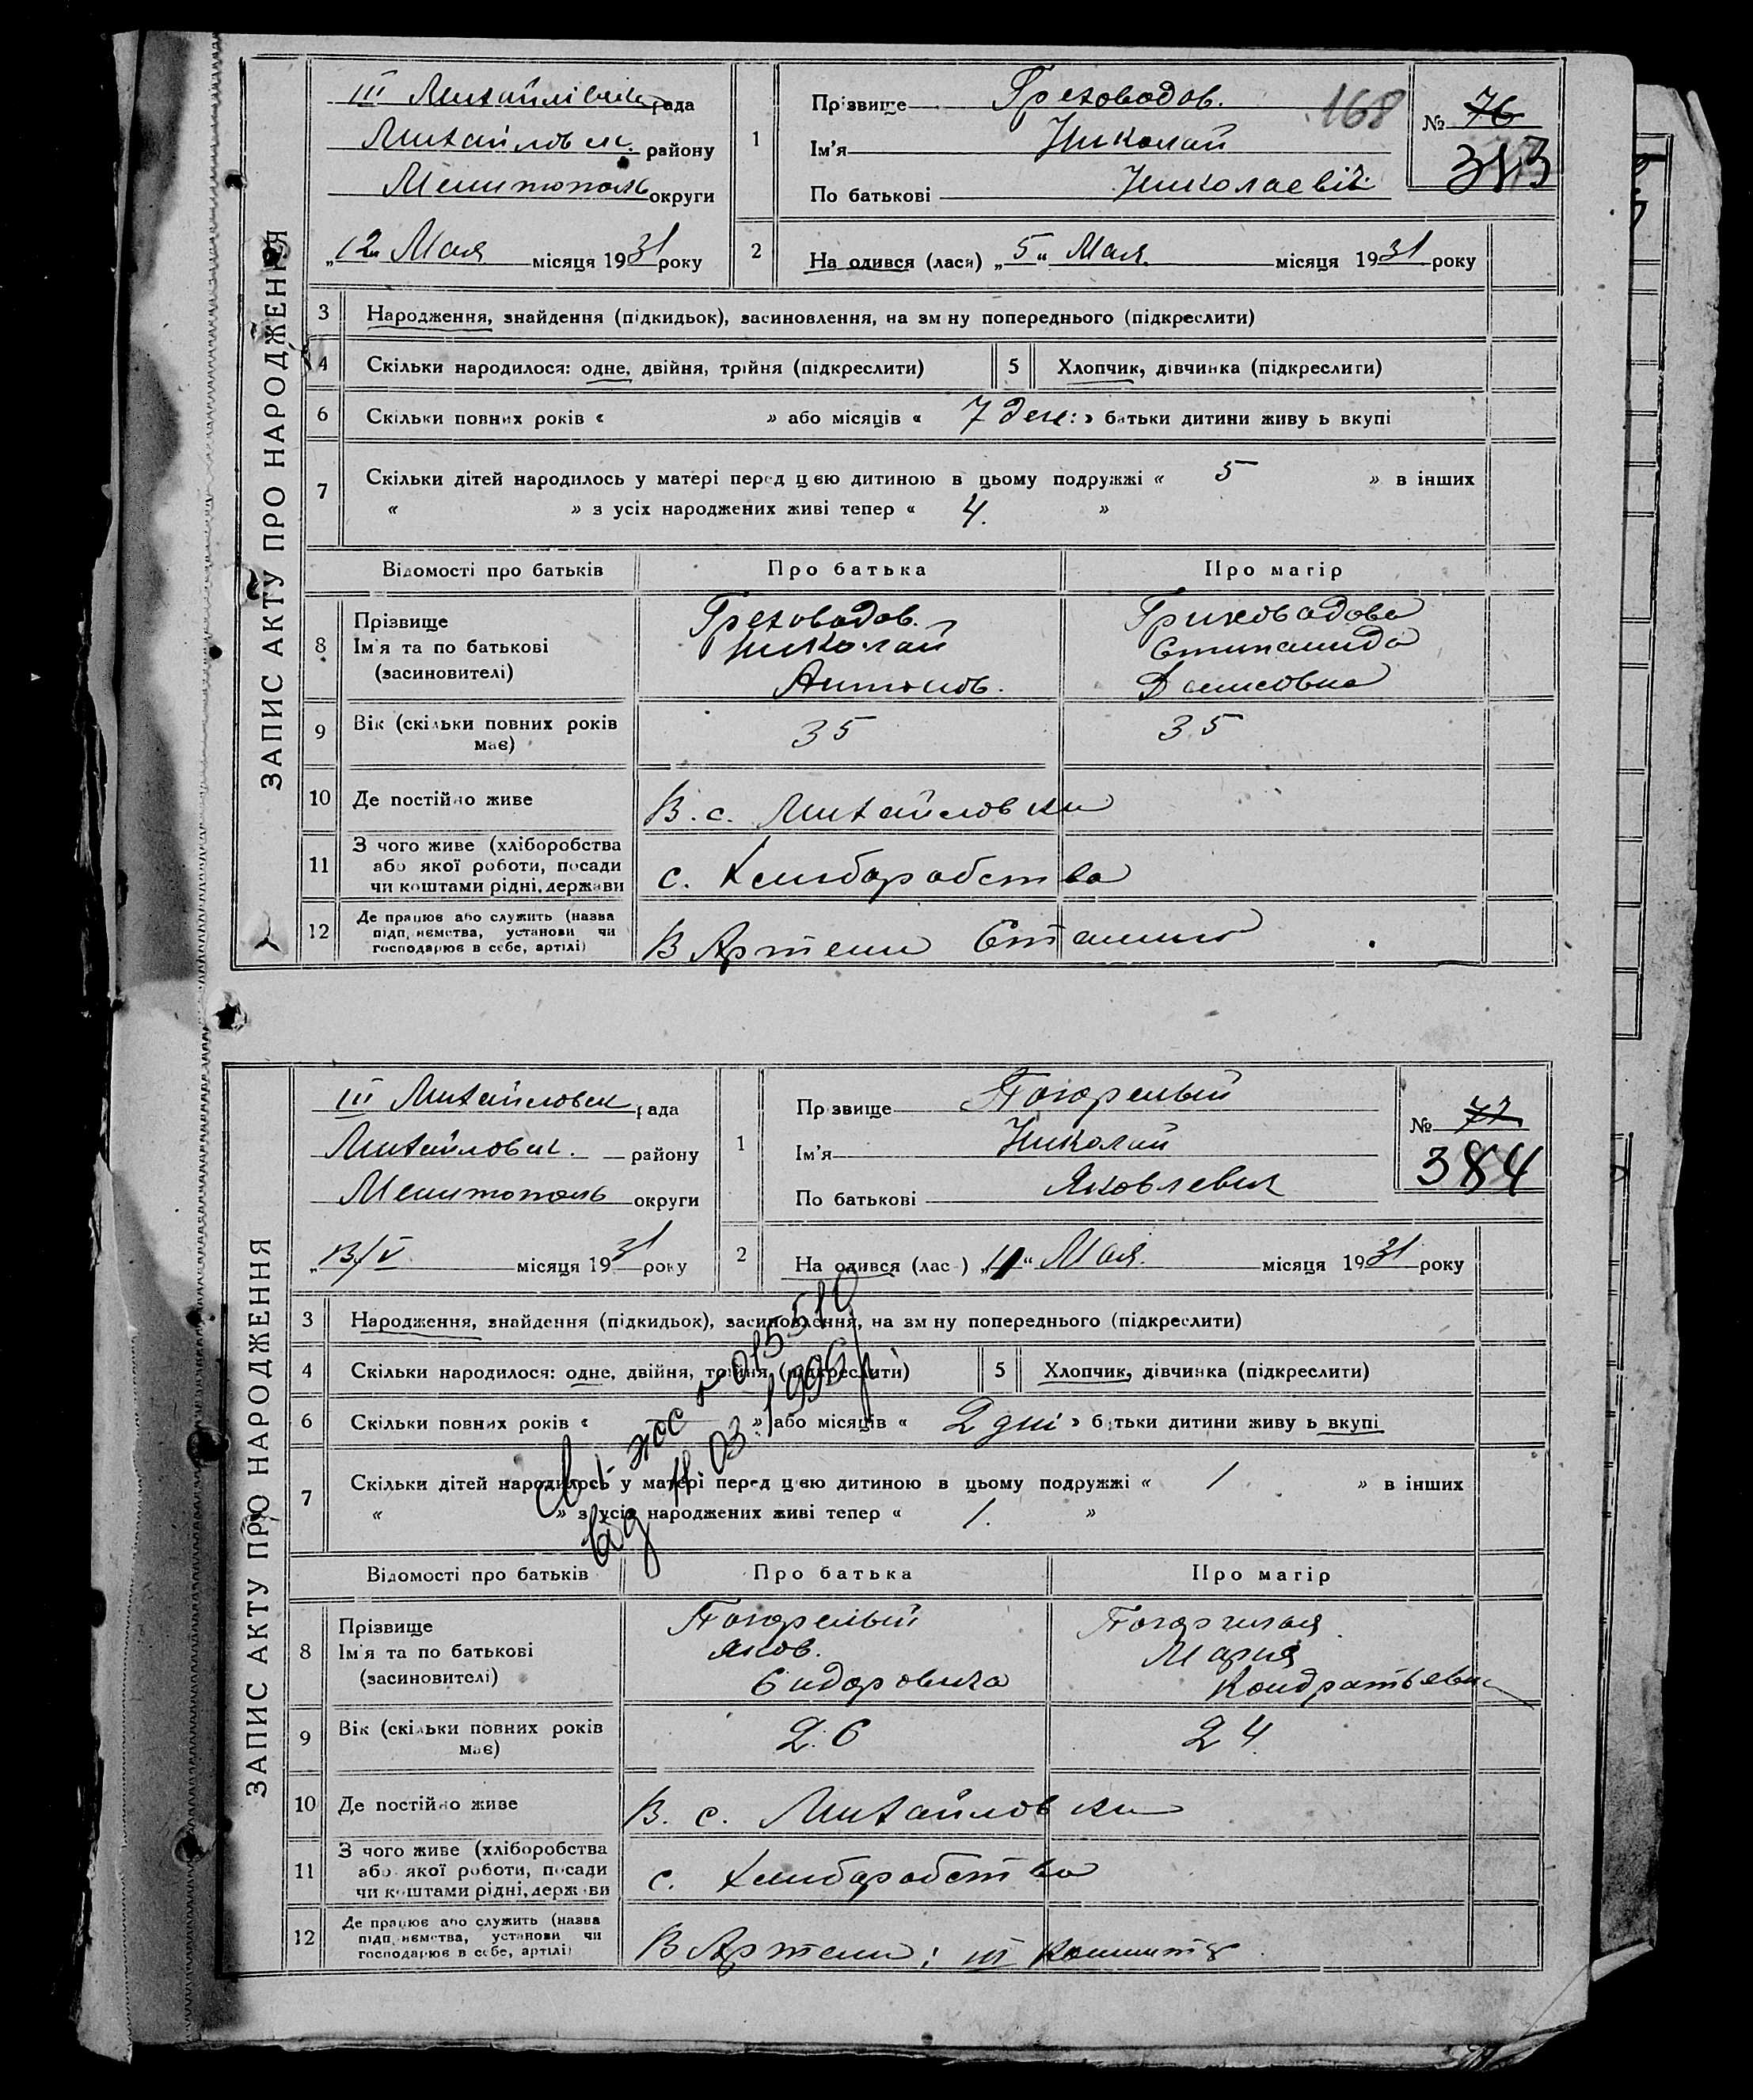 ЗАПИС АКТУ ПРО НАРОДЖЕННЯ
III Михайлівська рада
Михайловск. району
Мелитополь округи
"12" Мая місяця 1931 року
1 Прізвище Греховодов.
168
Ім'я Николай
По батькові Николаевіч
№ 76
383
2 На одився (лася) „5" Мая. місяця 1931 року
3 Народження, знайдення (підкидьок), засиновлення, на зм ну попереднього (підкреслити)
4 Скільки народилося: одне, двійня, трійня (підкреслити) 5 Хлопчик, дівчинка (підкреслити)
6 Скільки повних років « » або місяців « 7 ден: » батьки дитини живу ь вкупі
7 Скільки дітей народилось у матері перед цією дитиною в цьому подружжі « 5 » в інших
« » з усіх народжених живі тепер « 4. »
Відомості про батьків Про батька Про матір
8 Прізвище Греховодов. Гриховадова
Ім'я та по батькові Николай Стипанида
(засиновителі) Антонов. Денисовна
9 Вік (скільки повних років має) 35 35
10 Де постійно живе В. с. Михайловки
11 З чого живе (хліборобства
або якої роботи, посади
чи коштами рідні, держави с. Хлиборобства
12 Де працює або служить (назва
підп иємства, установи чи
господарює в себе, артілі) В Артели Сталина
ЗАПИС АКТУ ПРО НАРОДЖЕННЯ
III Михайловск рада
Михайловск. району
Мелитополь округи
„13/V місяця 1931 року
1 Пр звище Погорелый
Ім'я Николай
По батькові Яковлевич
№ 77
384
2 На одився (лас ) „11" Мая. місяця 1931 року
3 Народження, знайдення (підкидьок), засиновлення, на зм ну попереднього (підкреслити)
4 Скільки народилося: одне, двійня, трійня (підкреслити) 5 Хлопчик, дівчинка (підкреслити)
6 Скільки повних років « » або місяців « 2 дні » б тьки дитини живу ь вкупі
7 Скільки дітей народилось у матері перед цією дитиною в цьому подружжі « 1 » в інших
« » з усіх народжених живі тепер « 1. »
від 11.03.1996р
Відомості про батьків Про батька Про матір
8 Прізвище Погорелый Погорилая
Ім'я та по батькові Яков. Мария
(засиновителі) Сидоровича Кондратьевна
9 Вік (скільки повних років має) 26 24
10 Де постійно живе В. с. Михайловки
11 З чого живе (хліборобства
або якої роботи, посади
чи коштами рідні, держ ви с. Хлиборобства
12 Де працює або служить (назва
підп иємства, установи чи
господарює в себе, артілі) В Артели: III